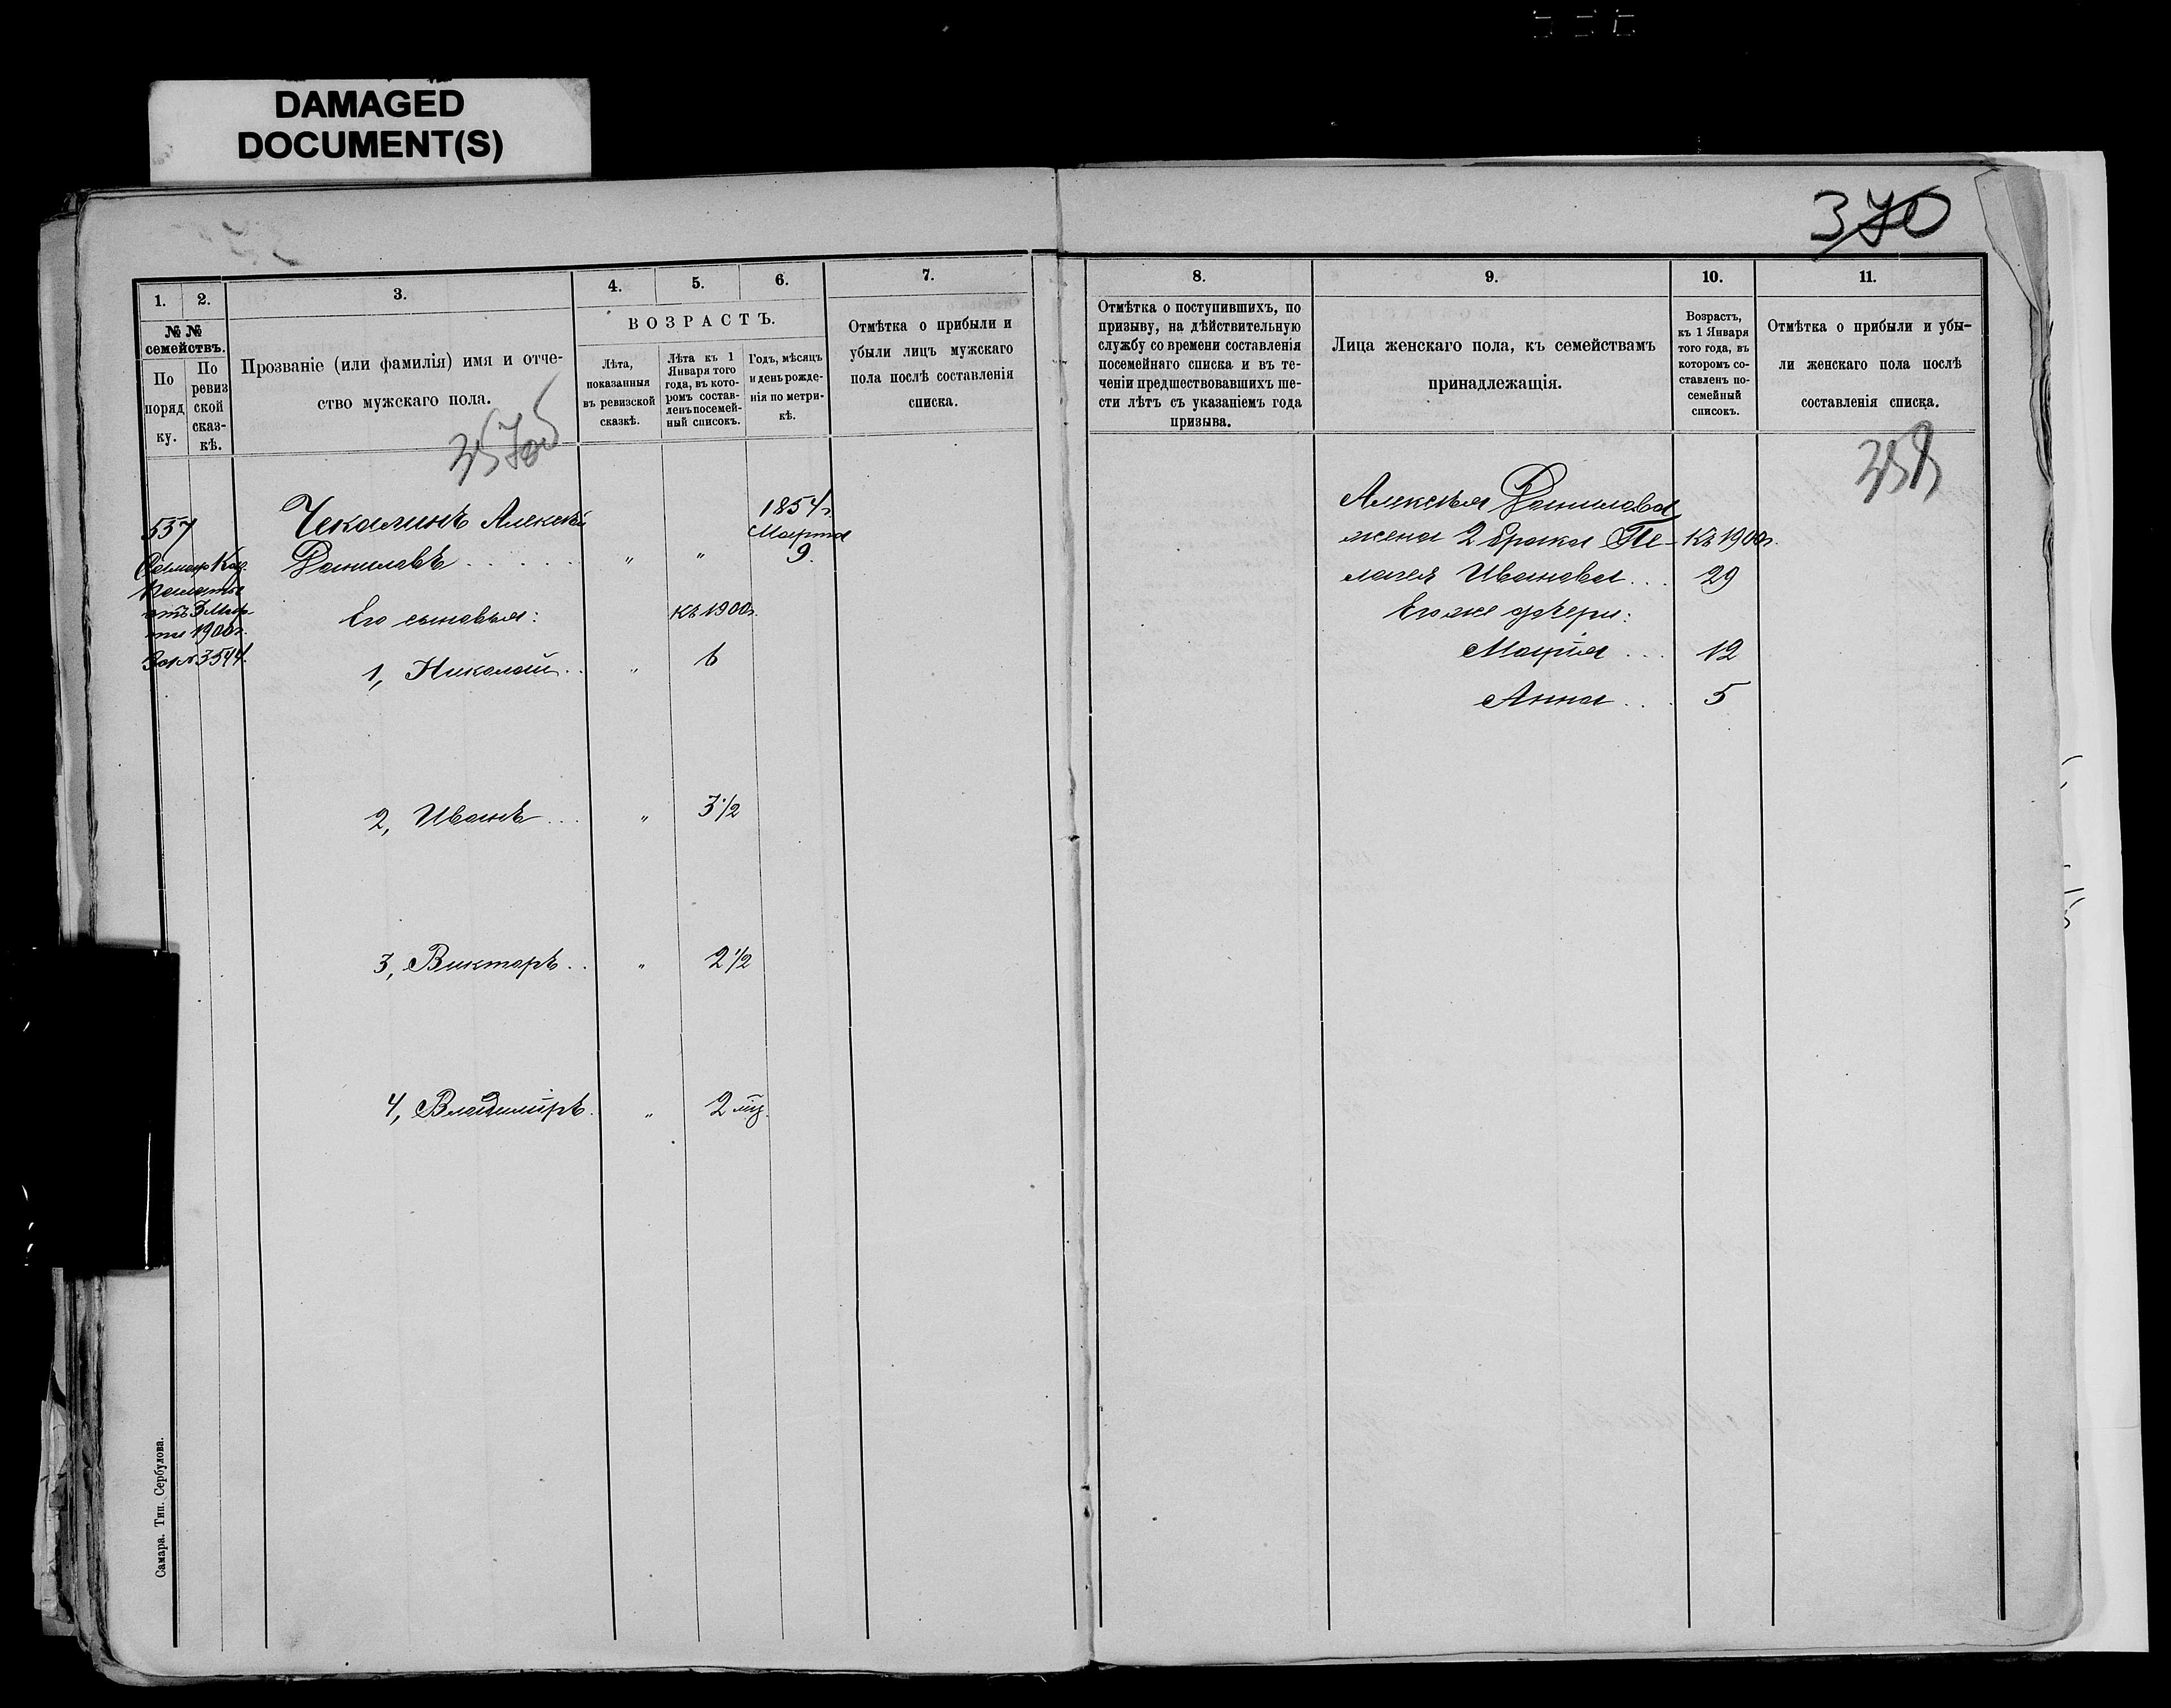 DAMAGED
DOCUMENT(S)
370
1.
2.
3.
4.
5.
6.
7.
№ №
семействъ.
По
поряд
ку.
По
ревиз
ской
сказ-
кѣ.
Прозваніе (или фамилія) имя и отче-
ство мужскаго пола.
ВОЗРАСТЪ.
Лѣта,
показанныя
въ ревизской
сказкѣ.
Лѣта къ 1
Января того
года, въ кото-
ромъ состав-
ленъ посемей-
ный списокъ.
Годъ, мѣсяцъ
и день рожде-
нія по метри-
кѣ.
Отмѣтка о прибыли и
убыли лицъ мужскаго
пола послѣ составленія
списка.
557
Самар Каз.
Палаты
отъ 3 Мар-
та 1900г.
За № 3544.
Чекалинъ Алексѣй
Даниловъ . . . . . .
" "
1854г.
Марта
9.
Его сыновья:
Къ 1900г.
1, Николай . . " 6
2, Иванъ . . . " 3 1/2
3, Викторъ . . " 2 1/2
4, Владиміръ . " 2 мц.
Самара. Тип. Сербулова.
8.
9.
10.
11.
Отмѣтка о поступившихъ, по
призыву, на дѣйствительную
службу со времени составленія
посемейнаго списка и въ те-
ченіи предшествовавшихъ ше-
сти лѣтъ съ указаніемъ года
призыва.
Лица женскаго пола, къ семействамъ
принадлежащія.
Возрастъ,
къ 1 Января
того года, въ
которомъ со-
ставленъ по-
семейный
списокъ.
Отмѣтка о прибыли и убы-
ли женскаго пола послѣ
составленія списка.
Алексѣя Данилова
жена 2 брака Пе- Къ 1900г.
лагея Иванова . . . 29
Его же дочери:
Марія . . . 12
Анна . . . 5